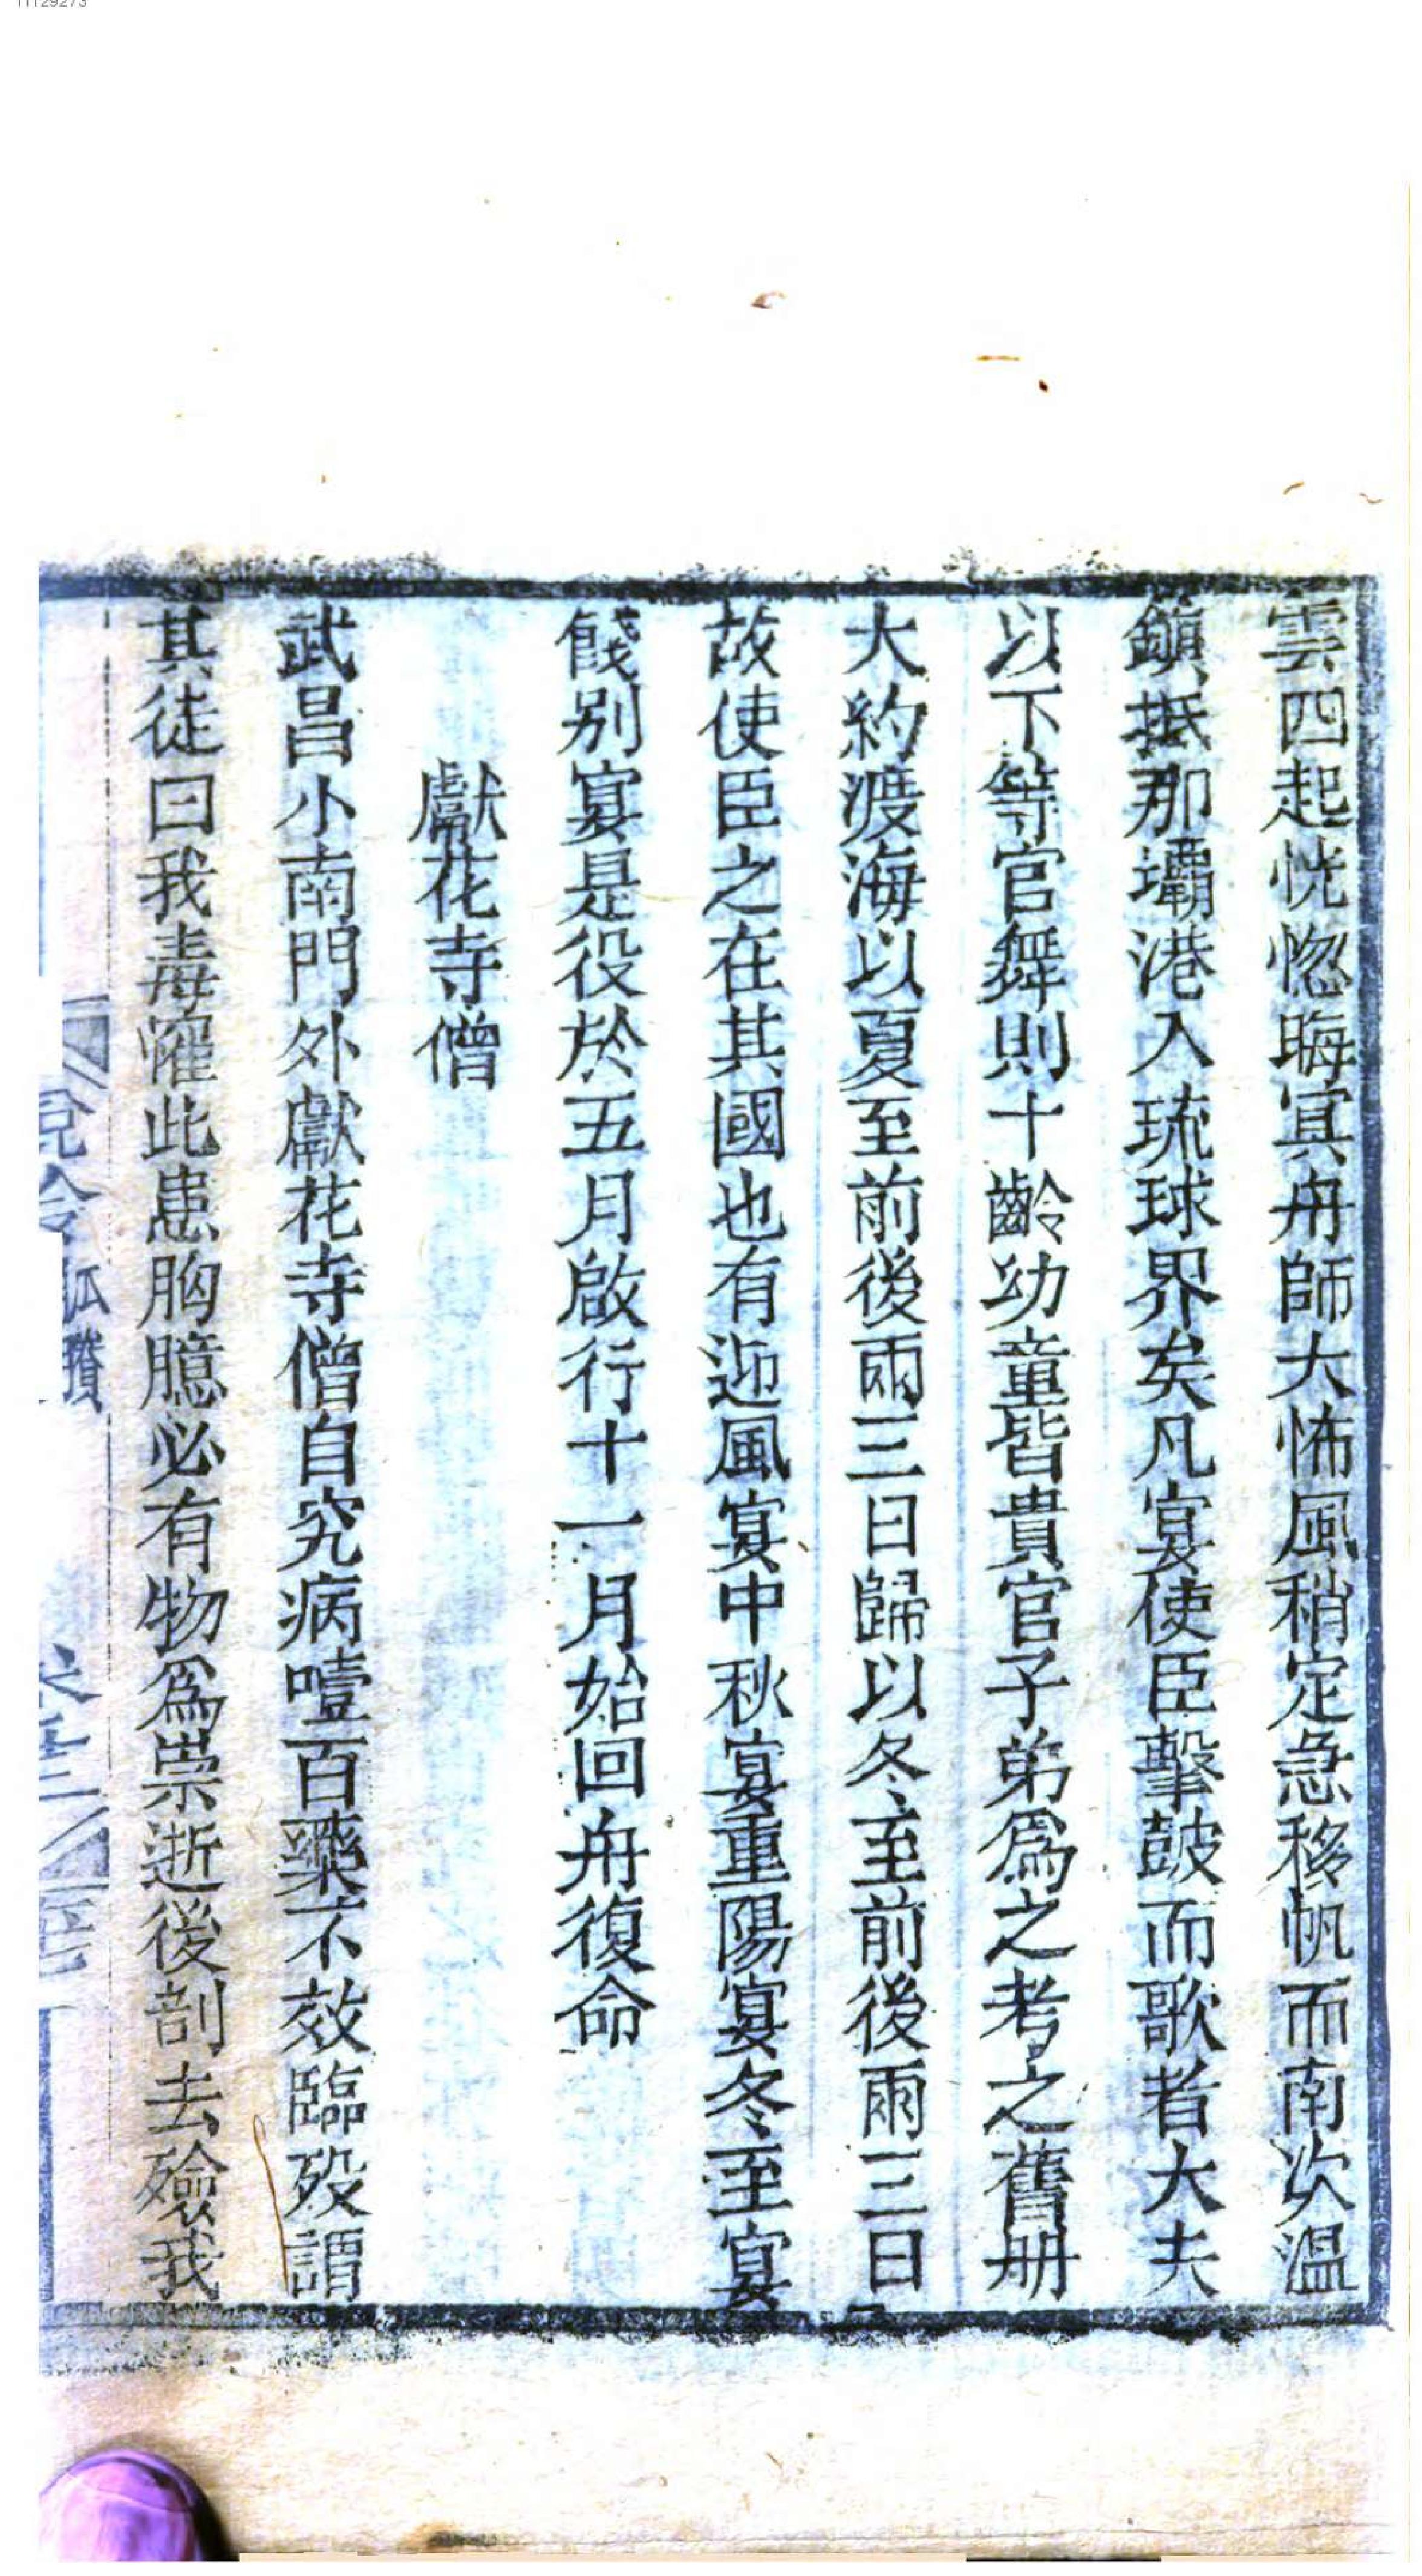 雲四起恍惚晦冥舟師大怖風稍定急移帆而南次温
鎮抵那壩港入琉球界矣凡宴使臣擊鼓而歌者大夫
以下等官舞則十齡幼童皆貴官子弟爲之考之舊册
大約渡海以夏至前後兩三日歸以冬至前後兩三日
故使臣之在其國也有迎風宴中秋宴重陽宴冬至宴
餞别宴是役於五月啟行十一月始回舟復命
獻花寺僧
武昌小南門外獻花寺僧自究病噎百藥不效臨殁謂
其徒曰我毒罹此患胸臆必有物爲祟逝後剖去殮我